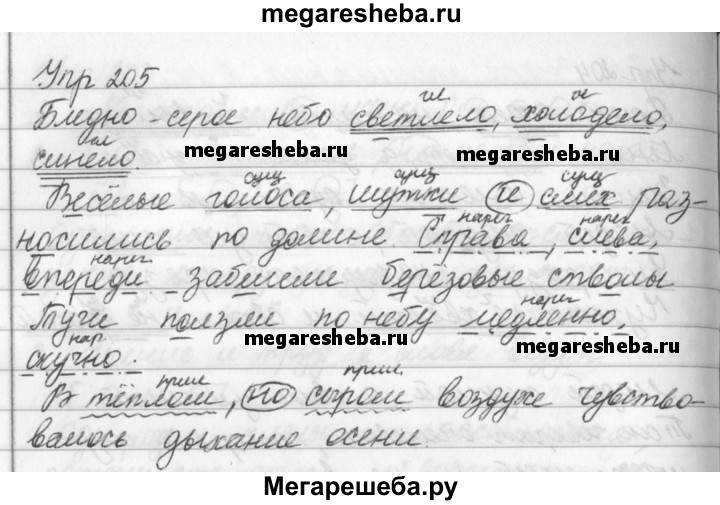 megaresheba.ru
Упр 205
Бледно-серое небо светлело, холодело,
гл гл
синело.
гл
megaresheba.ru
megaresheba.ru
Весёлые голоса, шутки и смех раз-
сущ сущ сущ
носились по долине. Справа, слева,
нареч нареч
впереди забелели берёзовые стволы
нареч
Тучи ползли по небу медленно,
нареч
скучно.
нар
megaresheba.ru
megaresheba.ru
В тёплом, но сыром воздухе чувство-
прил прил
валось дыхание осени.
megaresheba.ru
Мегарешеба.ру